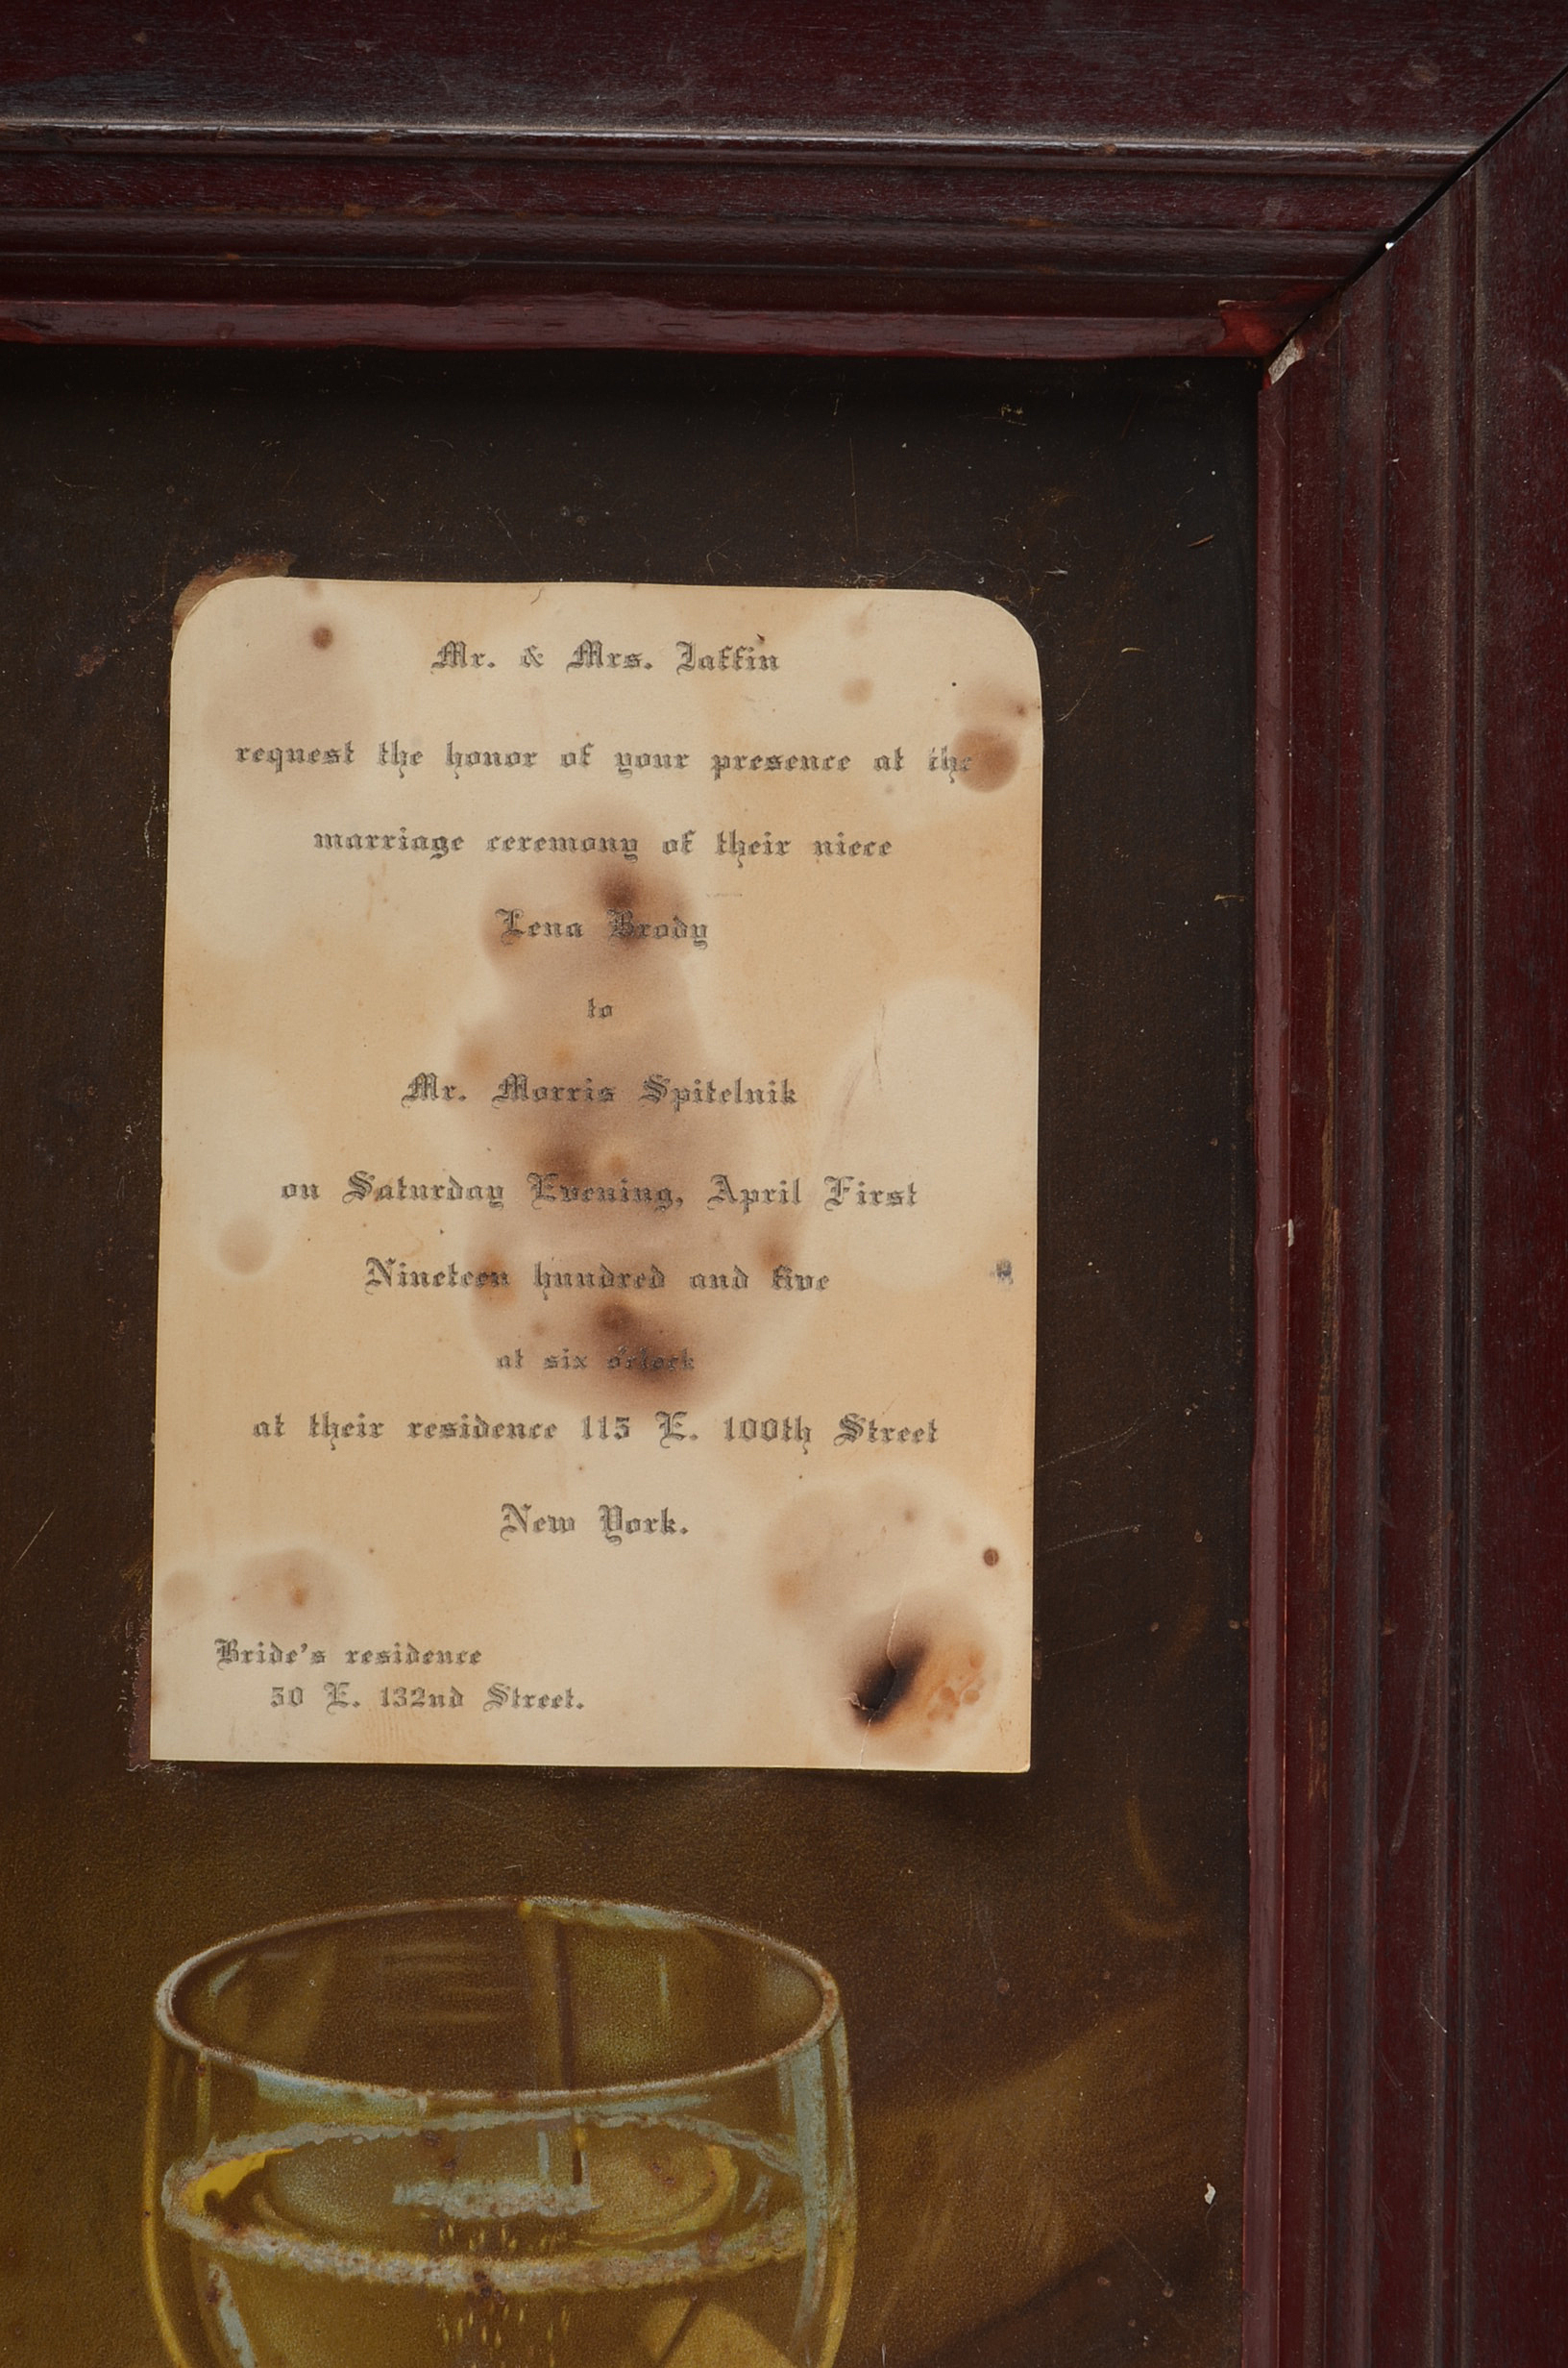 Mr. & Mrs. Jaffin
request the honor of your presence at the
marriage ceremony of their niece
Lena Brody
to
Mr. Morris Spitelnik
on Saturday Evening, April First
Nineteen hundred and five
at six o'clock
at their residence 115 E. 100th Street
New York.
Bride's residence
50 E. 132nd Street.